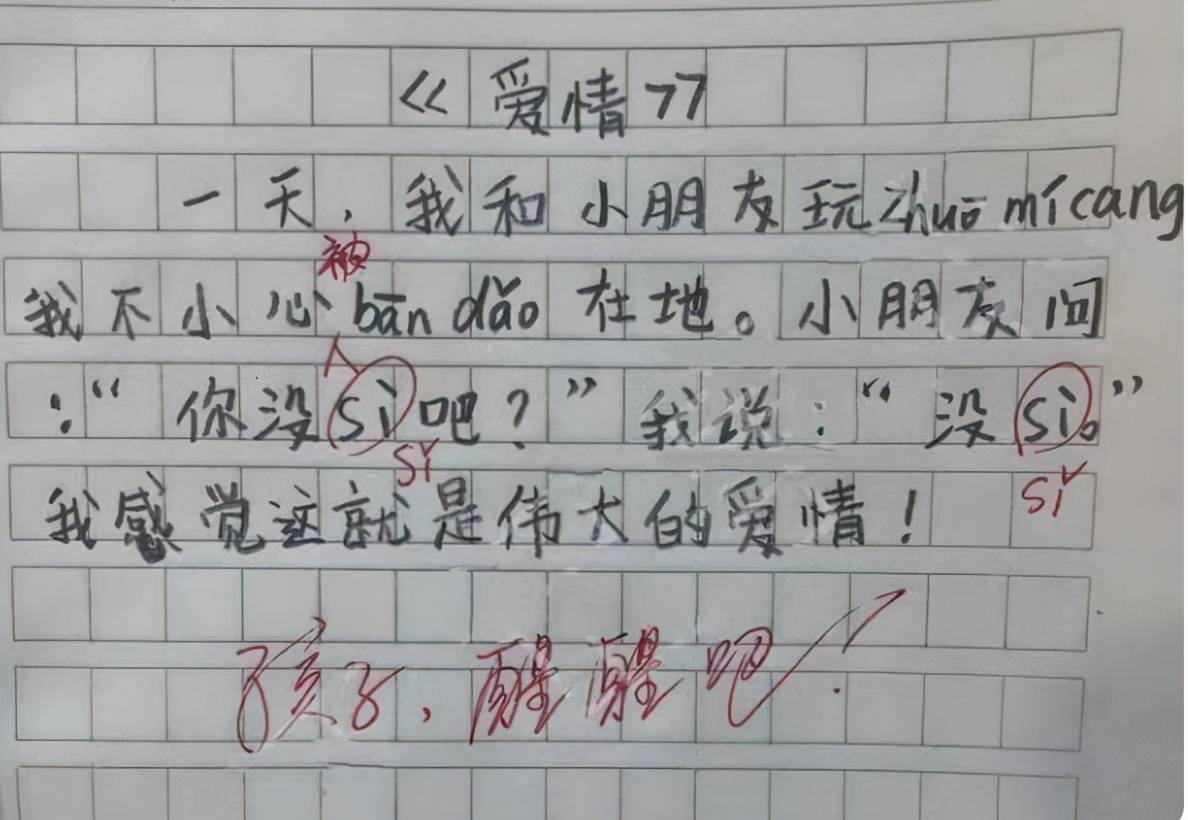 《爱情》
一天，我和小朋友玩zhuō mícang
被
我不小心bān dǎo在地。小朋友问
：“你没sì吧？”我说：“没sì。”
sǐ
sǐ
我感觉这就是伟大的爱情！
孩子，醒醒吧！